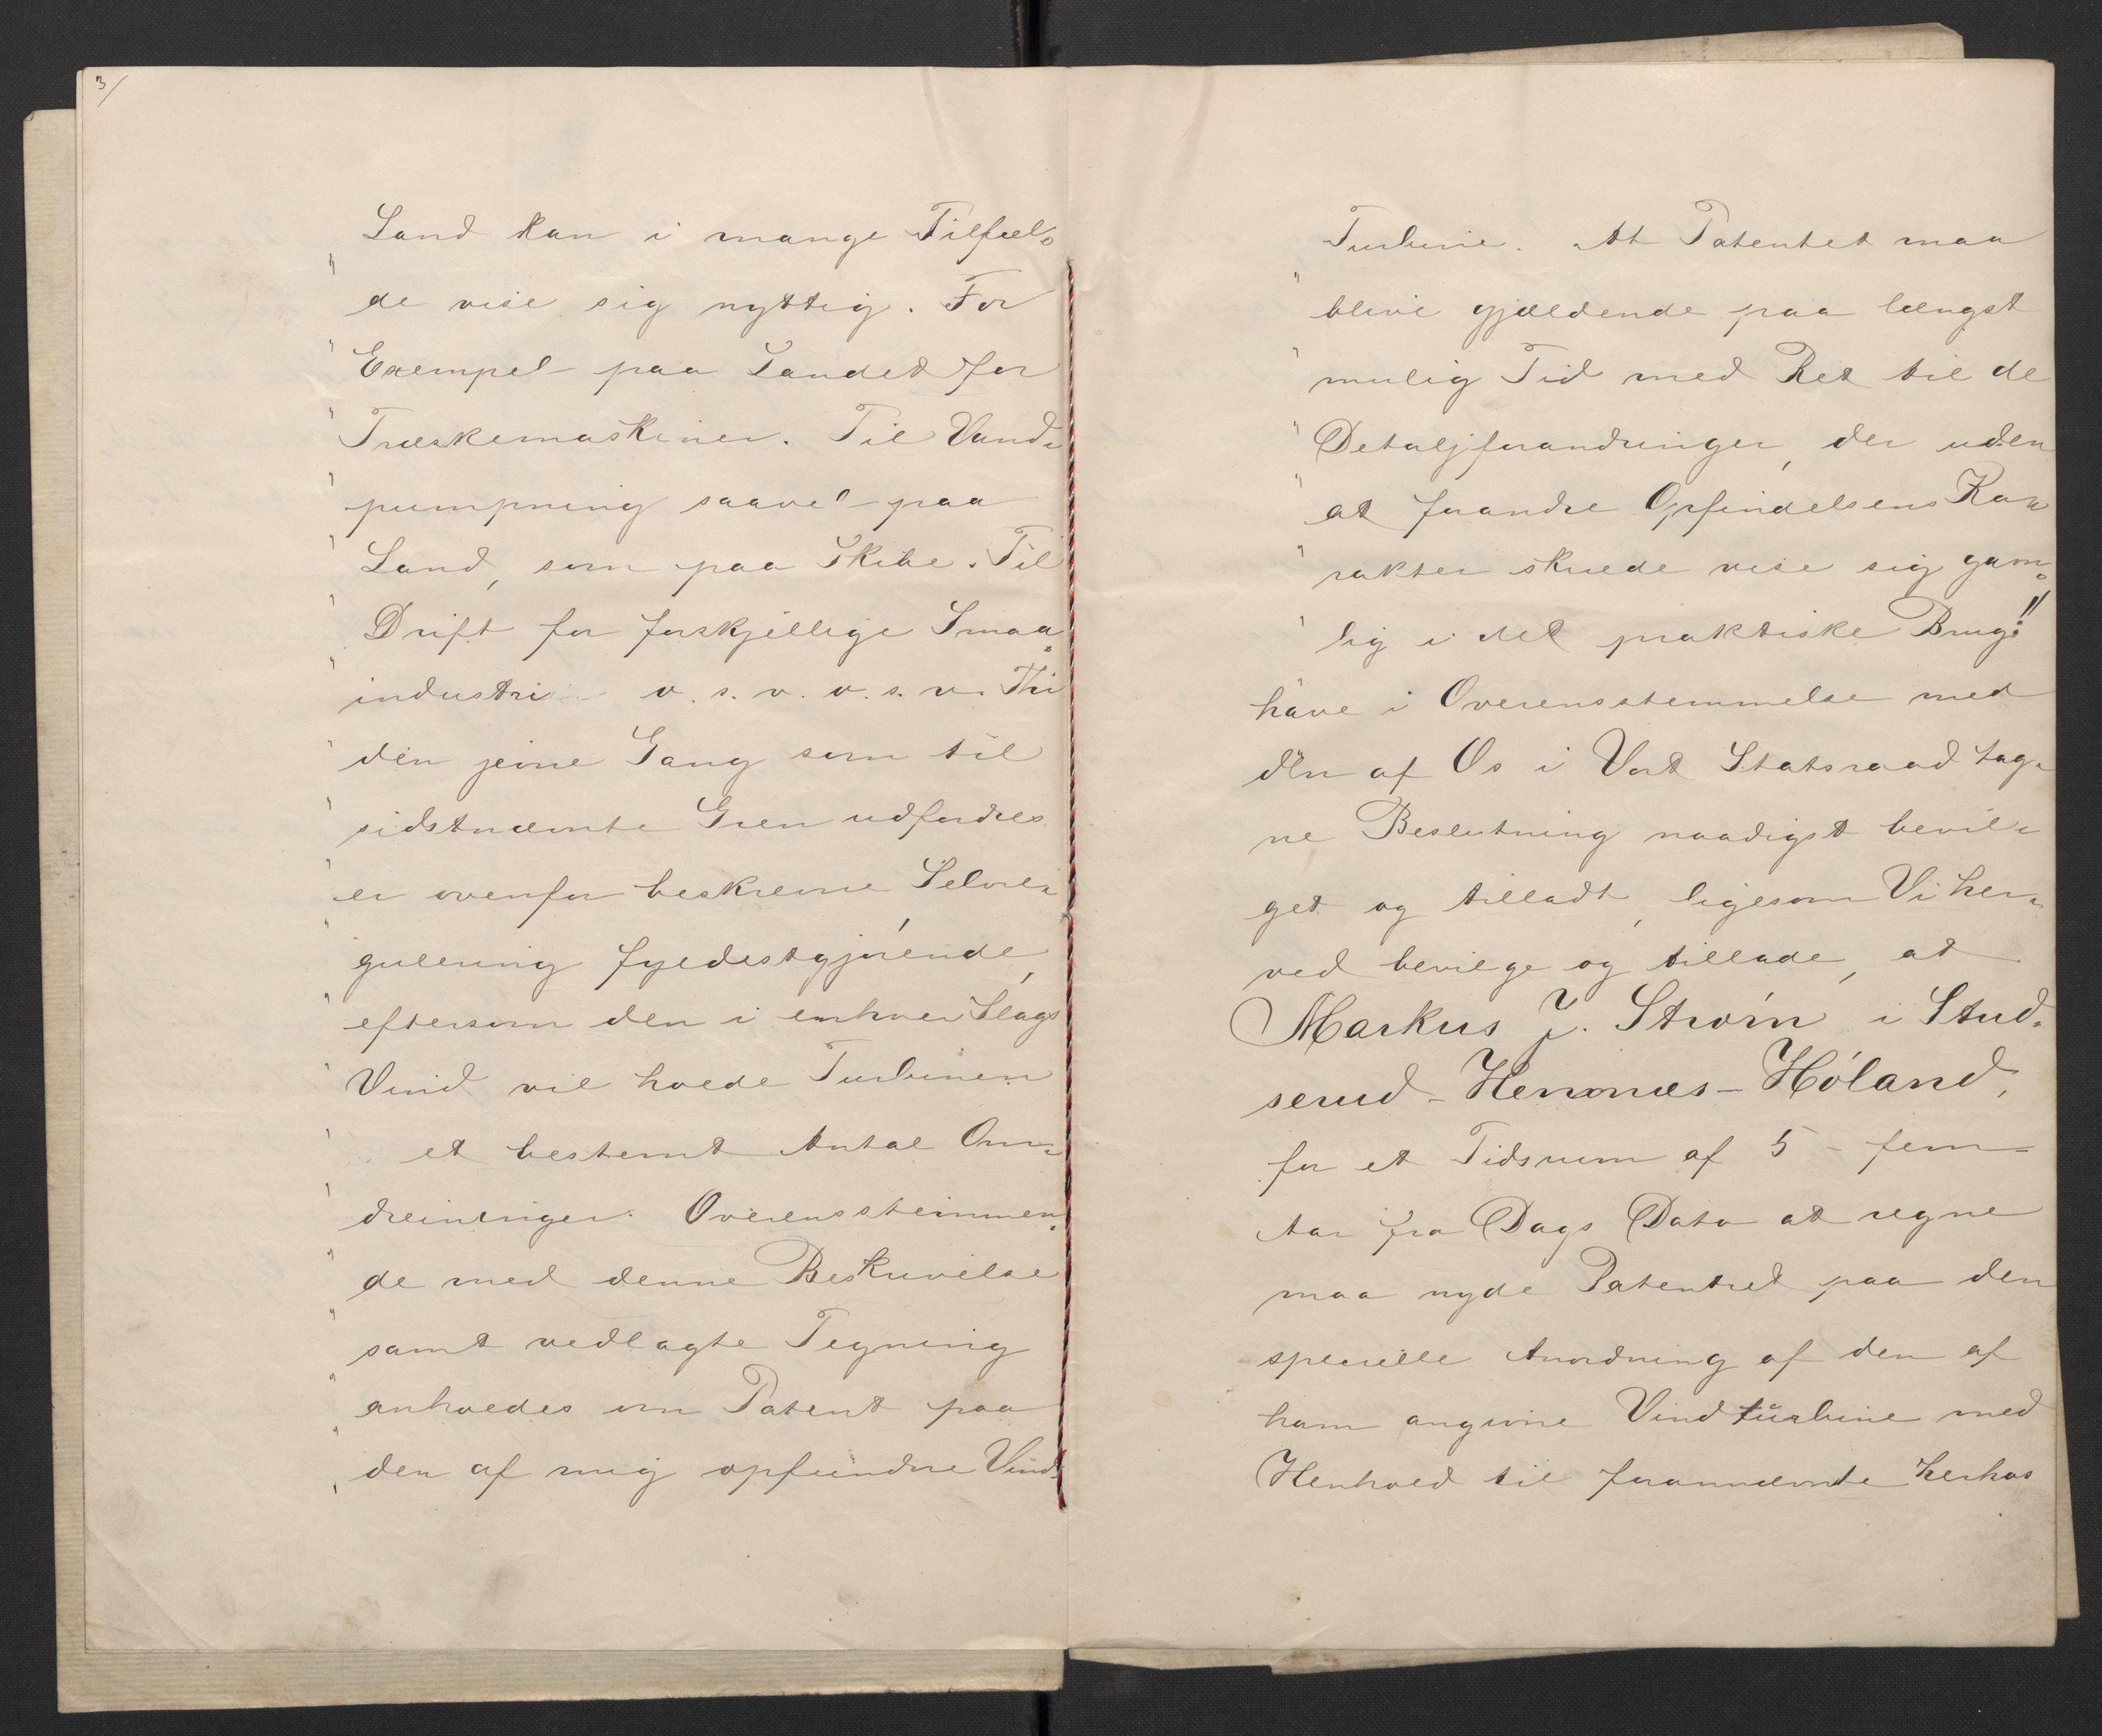 3/
Land kan i mange Tilfæl-
" de vise sig nyttig. For
" Exempel paa Landet for
" Træskemaskiner. Til Vand-
" pumpning saavel paa
" Land, som paa Skibe. Til
" Drift for forskjellige Smaa-
" industri o. s. v. o. s. v. Thi
" den jevne Gang som til
" sidstnævnte Gren udfordres
" er ovenfor beskrevne Selvre-
" gulering fyldestgjørende,
" eftersom den i enhver Slags
" Vind vil holde Turbinen
" et bestemt Antal Om-
" dreininger. Overensstemmen-
" de med denne Beskrivelse
" samt vedlagte Tegning
" anholdes om Patent paa
" den af mig opfundne Vind-
Turbine. At Patentet maa
" blive gjældende paa længst
" mulig Tid med Ret til de
" Detaljforandringer, der uden
" at forandre Opfindelsens Ka-
" rakter skulde vise sig gavn-
" lig i det praktiske Brug:"
have i Overensstemmelse med
den af Os i Vort Statsraad tag-
ne Beslutning naadigst bevil-
get og tilladt, ligesom Vi her-
ved bevilge og tillade, at
Markus J. Strøm i Stud-
serud - Hemnæs - Høland,
for et Tidsrum af 5 - fem -
Aar fra Dags Dato at regne
maa nyde Patentret paa den
specielle Anordning af den af
ham angivne Vindturbine med
Henhold til forannævnte herhos